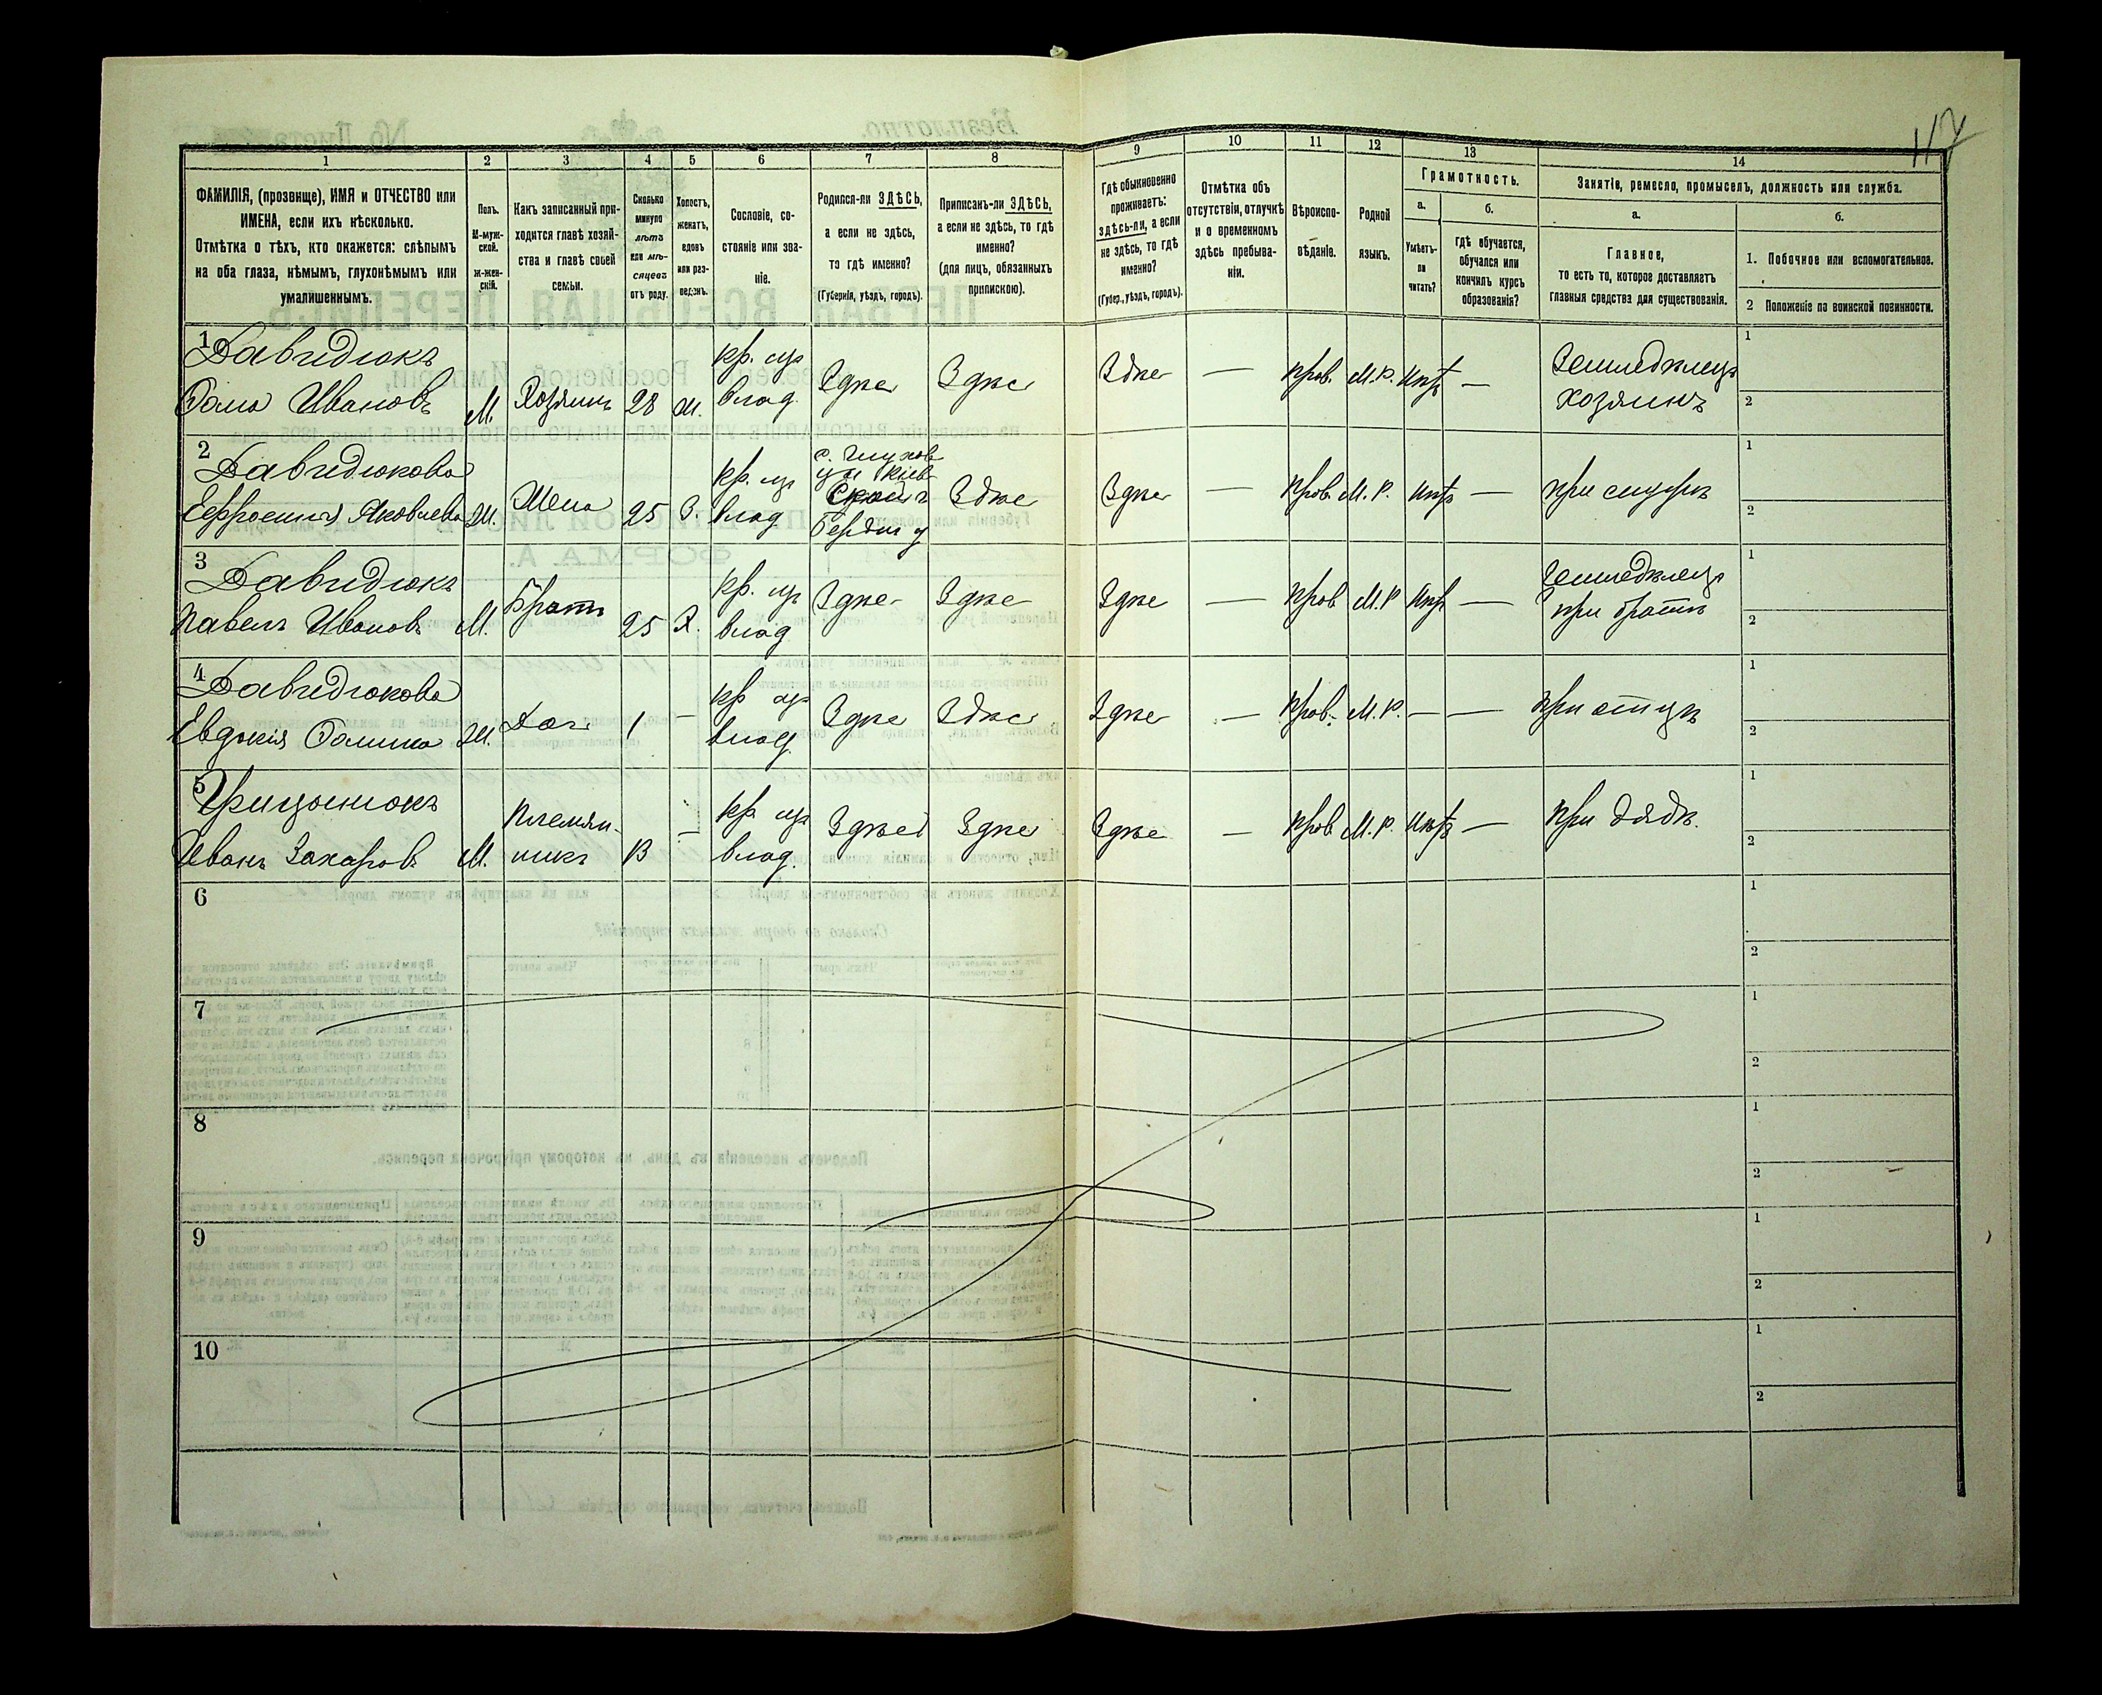 117
1 2 3 4 5 6 7 8 9 10 11 12 13 14
ФАМИЛІЯ, (прозвище), ИМЯ и ОТЧЕСТВО или
ИМЕНА, если ихъ нѣсколько.
Отмѣтка о тѣхъ, кто окажется: слѣпымъ
на оба глаза, нѣмымъ, глухонѣмымъ или
умалишеннымъ.
Полъ.
М-муж-
ской.
Ж-жен-
скій.
Какъ записанный при-
ходится главѣ хозяй-
ства и главѣ своей
семьи.
Сколько
минуло
лѣтъ
или мѣ-
сяцевъ
отъ роду.
Холостъ,
женатъ,
вдовъ
или раз-
веденъ.
Сословіе, со-
стояніе или зва-
ніе.
Родился-ли ЗДѢСЬ,
а если не здѣсь,
то гдѣ именно?
(Губернія, уѣздъ, городъ).
Приписанъ-ли ЗДѢСЬ,
а если не здѣсь, то гдѣ
именно?
(для лицъ, обязанныхъ
припискою).
Гдѣ обыкновенно
проживаетъ:
здѣсь-ли, а если
не здѣсь, то гдѣ
именно?
(Губер., уѣздъ, городъ).
Отмѣтка объ
отсутствіи, отлучкѣ
и о временномъ
здѣсь пребыва-
ніи.
Вѣроиспо-
вѣданіе.
Родной
языкъ.
Грамотность.
а.
Умѣетъ-
ли
читать?
б.
гдѣ обучается,
обучался или
кончилъ курсъ
образованія?
Занятіе, ремесло, промыселъ, должность или служба.
а.
Главное,
то есть то, которое доставляетъ
главныя средства для существованія.
б.
1. Побочное или вспомогательное.
2 Положеніе по воинской повинности.
1 Давидюкъ
Фома Ивановъ М. Хозяинъ 28 Ж. кр. влад. Здѣсь Здѣсь Здѣсь — прав. М.Р. Нѣтъ — Земледѣлецъ
хозяинъ 1 2
2 Давидюкова
Ефросинія Яковлева Ж. Жена 25 З. кр. влад. с. Глухов
цы Кіев
ской г
Бердич у Здѣсь Здѣсь — прав. М.Р. Нѣтъ — при супругѣ 1 2
3 Давидюкъ
Павелъ Ивановъ М. Братъ 25 Х. кр. влад. Здѣсь Здѣсь Здѣсь — прав М.Р Нѣтъ — Земледѣлецъ
при братѣ 1 2
4 Давидюкова
Евдокія Фомина Ж. Доч. 1 — кр влад. Здѣсь Здѣсь Здѣсь — прав. М.Р. — — при отцѣ 1 2
5 Грицынюкъ
Иванъ Захаровъ М. Племян-
никъ 13 — кр влад. Здѣсь Здѣсь Здѣсь — прав М.Р. Нѣтъ — при дядѣ. 1 2
6 1 2
7 1 2
8 1 2
9 1 2
10 1 2